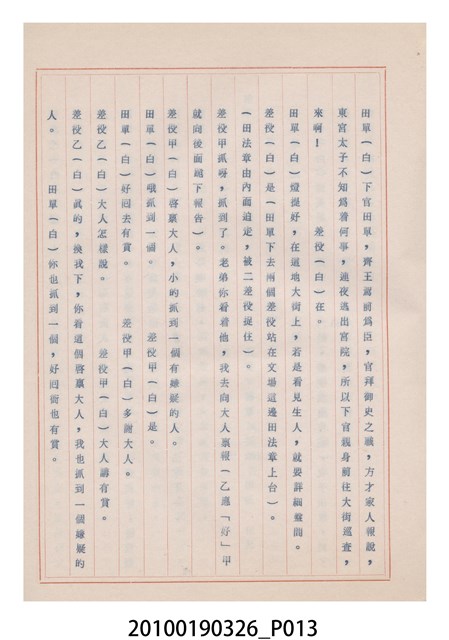 田單(白)下官田單,齊王駕前爲臣,官拜御史之職,方才家人報說,
東宮太子不知爲着何事,連夜逃出宮院,所以下官親身前往大街巡查,
來啊! 差役(白)在。
田單(白)燈提好,在這地大街上,若是看見生人,就要詳細盤問。
差役(白)是(田單下去兩個差役站在文場這邊田法章上台)。
(田法章由內面逃走,被二差役捉住)。
差役甲抓呀,抓到了。老弟你看着他,我去向大人稟報(乙應「好」甲
就向後面跪下報告)。
差役甲(白)啓稟大人,小的抓到一個有嫌疑的人。
田單(白)哦抓到一個。 差役甲(白)是。
田單(白)好回去有賞。 差役甲(白)多謝大人。
差役乙(白)大人怎樣說。 差役甲(白)大人講有賞。
差役乙(白)眞的,換我下,你看這個啓稟大人,我也抓到一個嫌疑的
人。 田單(白)你也抓到一個,好回衙也有賞。
20100190326_P013